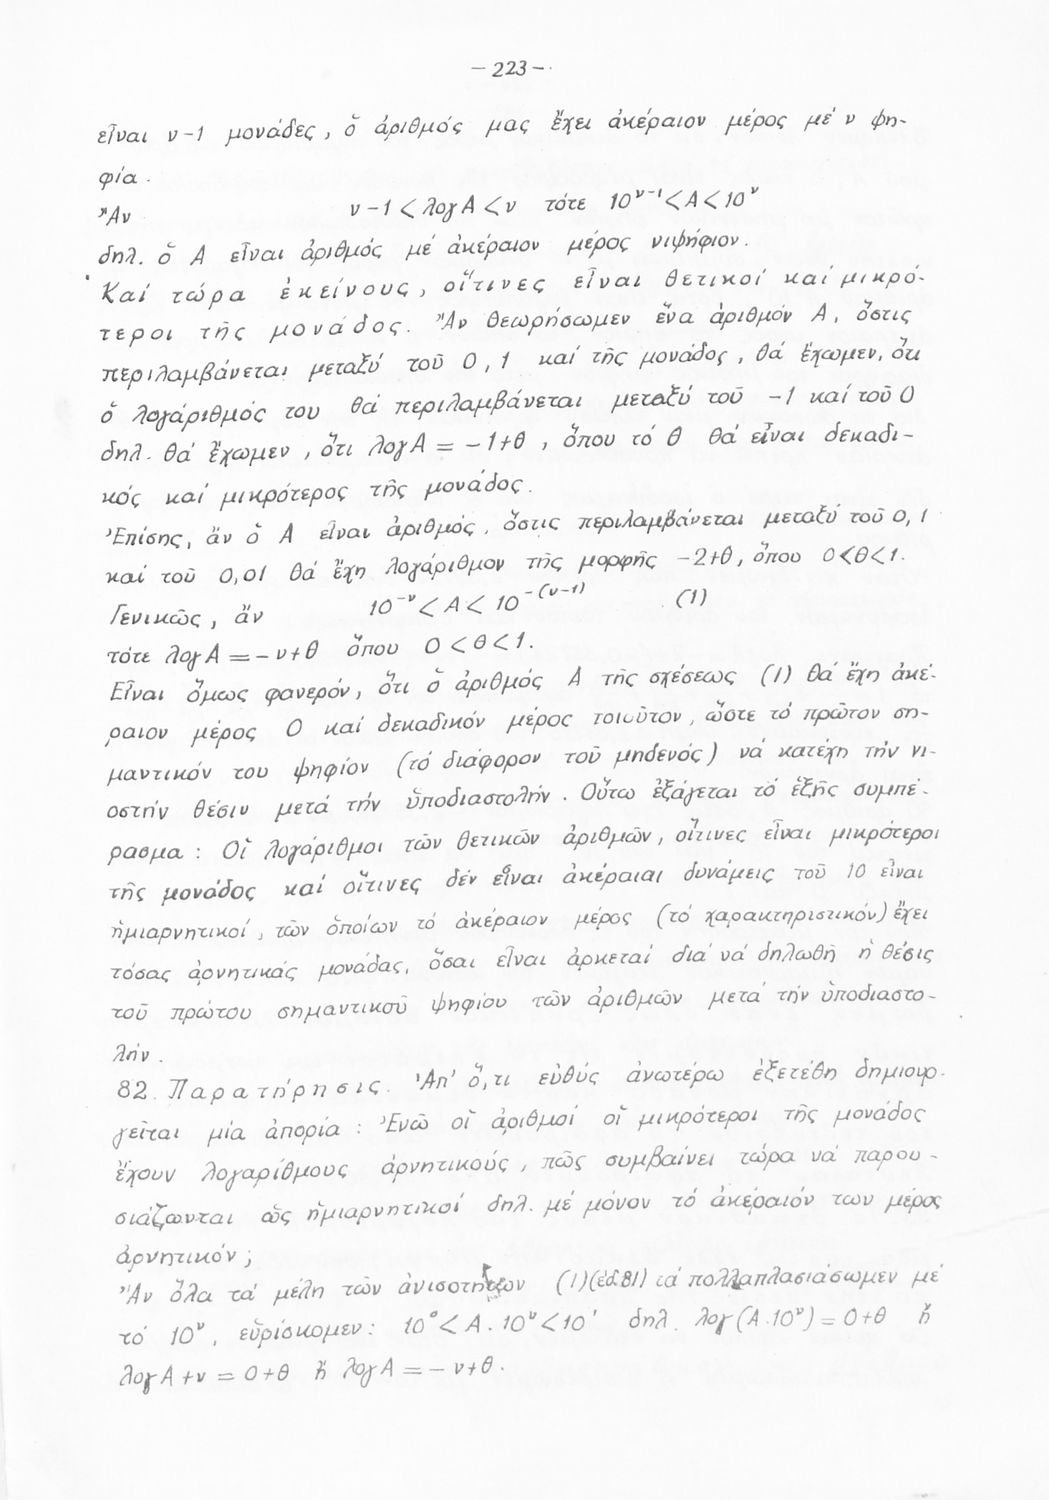 - 223 -
εἶναι ν-1 μονάδες, ὅ ἀριθμός μας ἔχει ἀκέραιον μέρος μέ ν ψη-
φία.
Ἄν ν-1 < λογΑ < ν τότε 10^{ν-1} < Α < 10^ν
δηλ. ὅ Α εἶναι ἀριθμός μέ ἀκέραιον μέρος νιψήφιον.
Καί τώρα ἐκείνους, οἵτινες εἶναι θετικοί καί μικρό-
τεροι τῆς μονάδος. Ἄν θεωρήσωμεν ἕνα ἀριθμόν Α, ὅστις
περιλαμβάνεται μεταξύ τοῦ 0,1 καί τῆς μονάδος, θά ἔχωμεν, ὅτι
ὅ λογάριθμός του θά περιλαμβάνεται μεταξύ τοῦ -1 καί τοῦ 0
δηλ. θά ἔχωμεν, ὅτι λογΑ = -1+θ, ὅπου τό θ θά εἶναι δεκαδι-
κός καί μικρότερος τῆς μονάδος.
Ἐπίσης, ἄν ὅ Α εἶναι ἀριθμός, ὅστις περιλαμβάνεται μεταξύ τοῦ 0,1
καί τοῦ 0,01 θά ἔχη λογάριθμον τῆς μορφῆς -2+θ, ὅπου 0<θ<1.
Γενικῶς, ἄν 10^{-ν} < Α < 10^{-(ν-1)} (1)
τότε λογΑ = -ν+θ ὅπου 0 < θ < 1.
Εἶναι ὅμως φανερόν, ὅτι ὅ ἀριθμός Α τῆς σχέσεως (1) θά ἔχη ἀκέ-
ραιον μέρος 0 καί δεκαδικόν μέρος τοιοῦτον, ὥστε τό πρῶτον ση-
μαντικόν του ψηφίον (τό διάφορον τοῦ μηδενός) νά κατέχη τήν νι-
οστήν θέσιν μετά τήν ὑποδιαστολήν. Οὕτω ἐξάγεται τό ἑξῆς συμπέ-
ρασμα: Οἱ λογάριθμοι τῶν θετικῶν ἀριθμῶν, οἵτινες εἶναι μικρότεροι
τῆς μονάδος καί οἵτινες δέν εἶναι ἀκέραιαι δυνάμεις τοῦ 10 εἶναι
ἡμιαρνητικοί, τῶν ὁποίων τό ἀκέραιον μέρος (τό χαρακτηριστικόν) ἔχει
τόσας ἀρνητικάς μονάδας, ὅσαι εἶναι ἀρκεταί διά νά δηλωθῆ ἡ θέσις
τοῦ πρώτου σημαντικοῦ ψηφίου τῶν ἀριθμῶν μετά τήν ὑποδιαστο-
λήν.
82. Παρατήρησις. Ἀπ' ὅ,τι εὐθύς ἀνωτέρω ἐξετέθη δημιουρ-
γεῖται μία ἀπορία: Ἐνῶ οἱ ἀριθμοί οἱ μικρότεροι τῆς μονάδος
ἔχουν λογαρίθμους ἀρνητικούς, πῶς συμβαίνει τώρα νά παρου-
σιάζωνται ὡς ἡμιαρνητικοί δηλ. μέ μόνον τό ἀκέραιόν των μέρος
ἀρνητικόν;
Ἄν ὅλα τά μέλη τῶν ἀνισοτήτων (1)(ἐδ.81) τά πολλαπλασιάσωμεν μέ
τό 10^ν, εὑρίσκομεν: 10^0 < Α.10^ν < 10^1 δηλ. λογ(Α.10^ν) = 0+θ ἤ
λογΑ+ν = 0+θ ἤ λογΑ = -ν+θ.